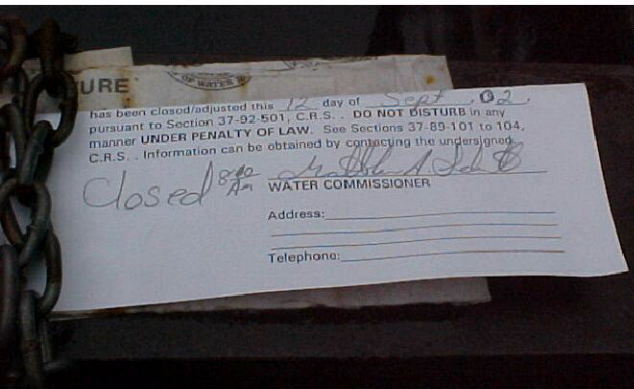 URE
OF WATER
has been closed/adjusted this 12 day of Sept, 02,
pursuant to Section 37-92-501, C.R.S. . DO NOT DISTURB in any
manner UNDER PENALTY OF LAW. See Sections 37-89-101 to 104,
C.R.S. . Information can be obtained by contacting the undersigned.
Closed
WATER COMMISSIONER
Address:
Telephone: